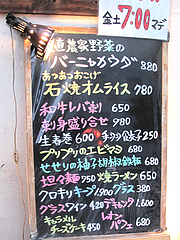 金土7:00マデ
直農家野菜の
バーニャカウダ 880
あつあつおこげ
石焼オムライス 780
和牛レバ刺 650
刺身盛り合せ 980
生春巻 600 チヂミ餃子 250
プリプリのエビマヨ 680
せせりの柚子胡椒鉄板 680
担々麺 550 焼ラーメン 650
クロキリキープ 1900 グラス 380
グラスワイン 420 デキャンタ 1,600
キャラメル
チーズケーキ 450
レオン
パフェ 680